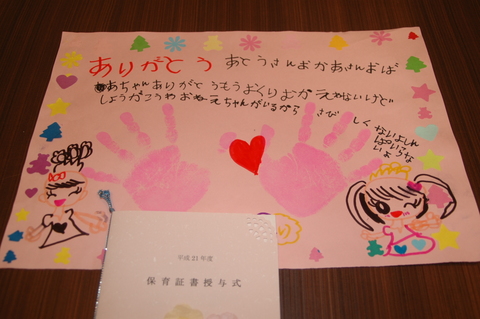 ありがとう おとうさんおかあさんおば
あちゃんありがとうもうおくりおかえないけど
しょうがこうやおねえちゃんがいるから さびしく
ないよしん
ぱいし
ないよ
平成21年度
保育証書授与式